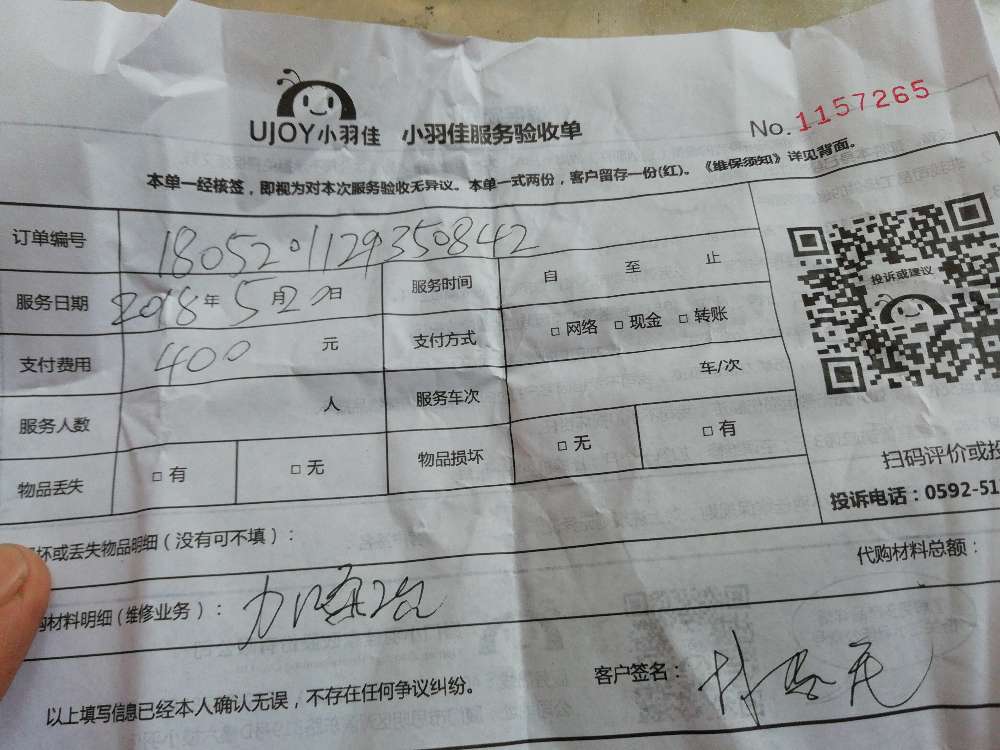 UJOY小羽佳 小羽佳服务验收单
No. 1157265
本单一经核签，即视为对本次服务验收无异议。本单一式两份，客户留存一份(红)。《维保须知》详见背面。
订单编号 180520112935 0842
服务日期 2018年5月20日 服务时间 自 至 止
支付费用 400 元 支付方式 □ 网络 □ 现金 □ 转账
服务人数 人 服务车次 车/次
物品丢失 □ 有 □ 无 物品损坏 □ 无 □ 有
投诉或建议
扫码评价或投
投诉电话：0592-51
坏或丢失物品明细（没有可不填）：
代购材料总额：
购材料明细（维修业务）：
以上填写信息已经本人确认无误，不存在任何争议纠纷。
客户签名：